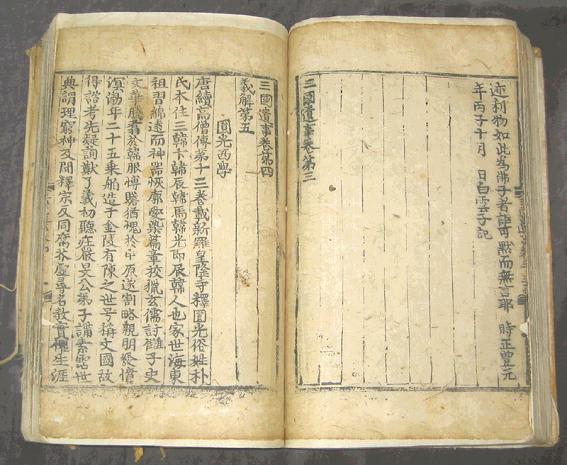 迹利物如此爲佛子者詎可黙而無言耶 時正豊元
年丙子十月 日白雲子記
三國遺事卷第三
三國遺事卷第四
義解第五
圓光西學
唐續高僧傳第十三卷載新羅皇隆寺釋圓光俗姓朴
氏本住三韓卞韓辰韓馬韓光即辰韓人也家世海東
祖習綿遠而神器恢廓愛染篇章校獵玄儒討讎子史
文華騰翥於韓服博贍猶愧於中原遂割略親朋發憤
溟渤年二十五乗舶造于金陵有陳之世号稱文國故
得諮考先疑詢猷了義初聽莊嚴旻公弟子講素霑世
典謂理窮神及聞釋宗反同腐芥虛尋名教實懼生涯